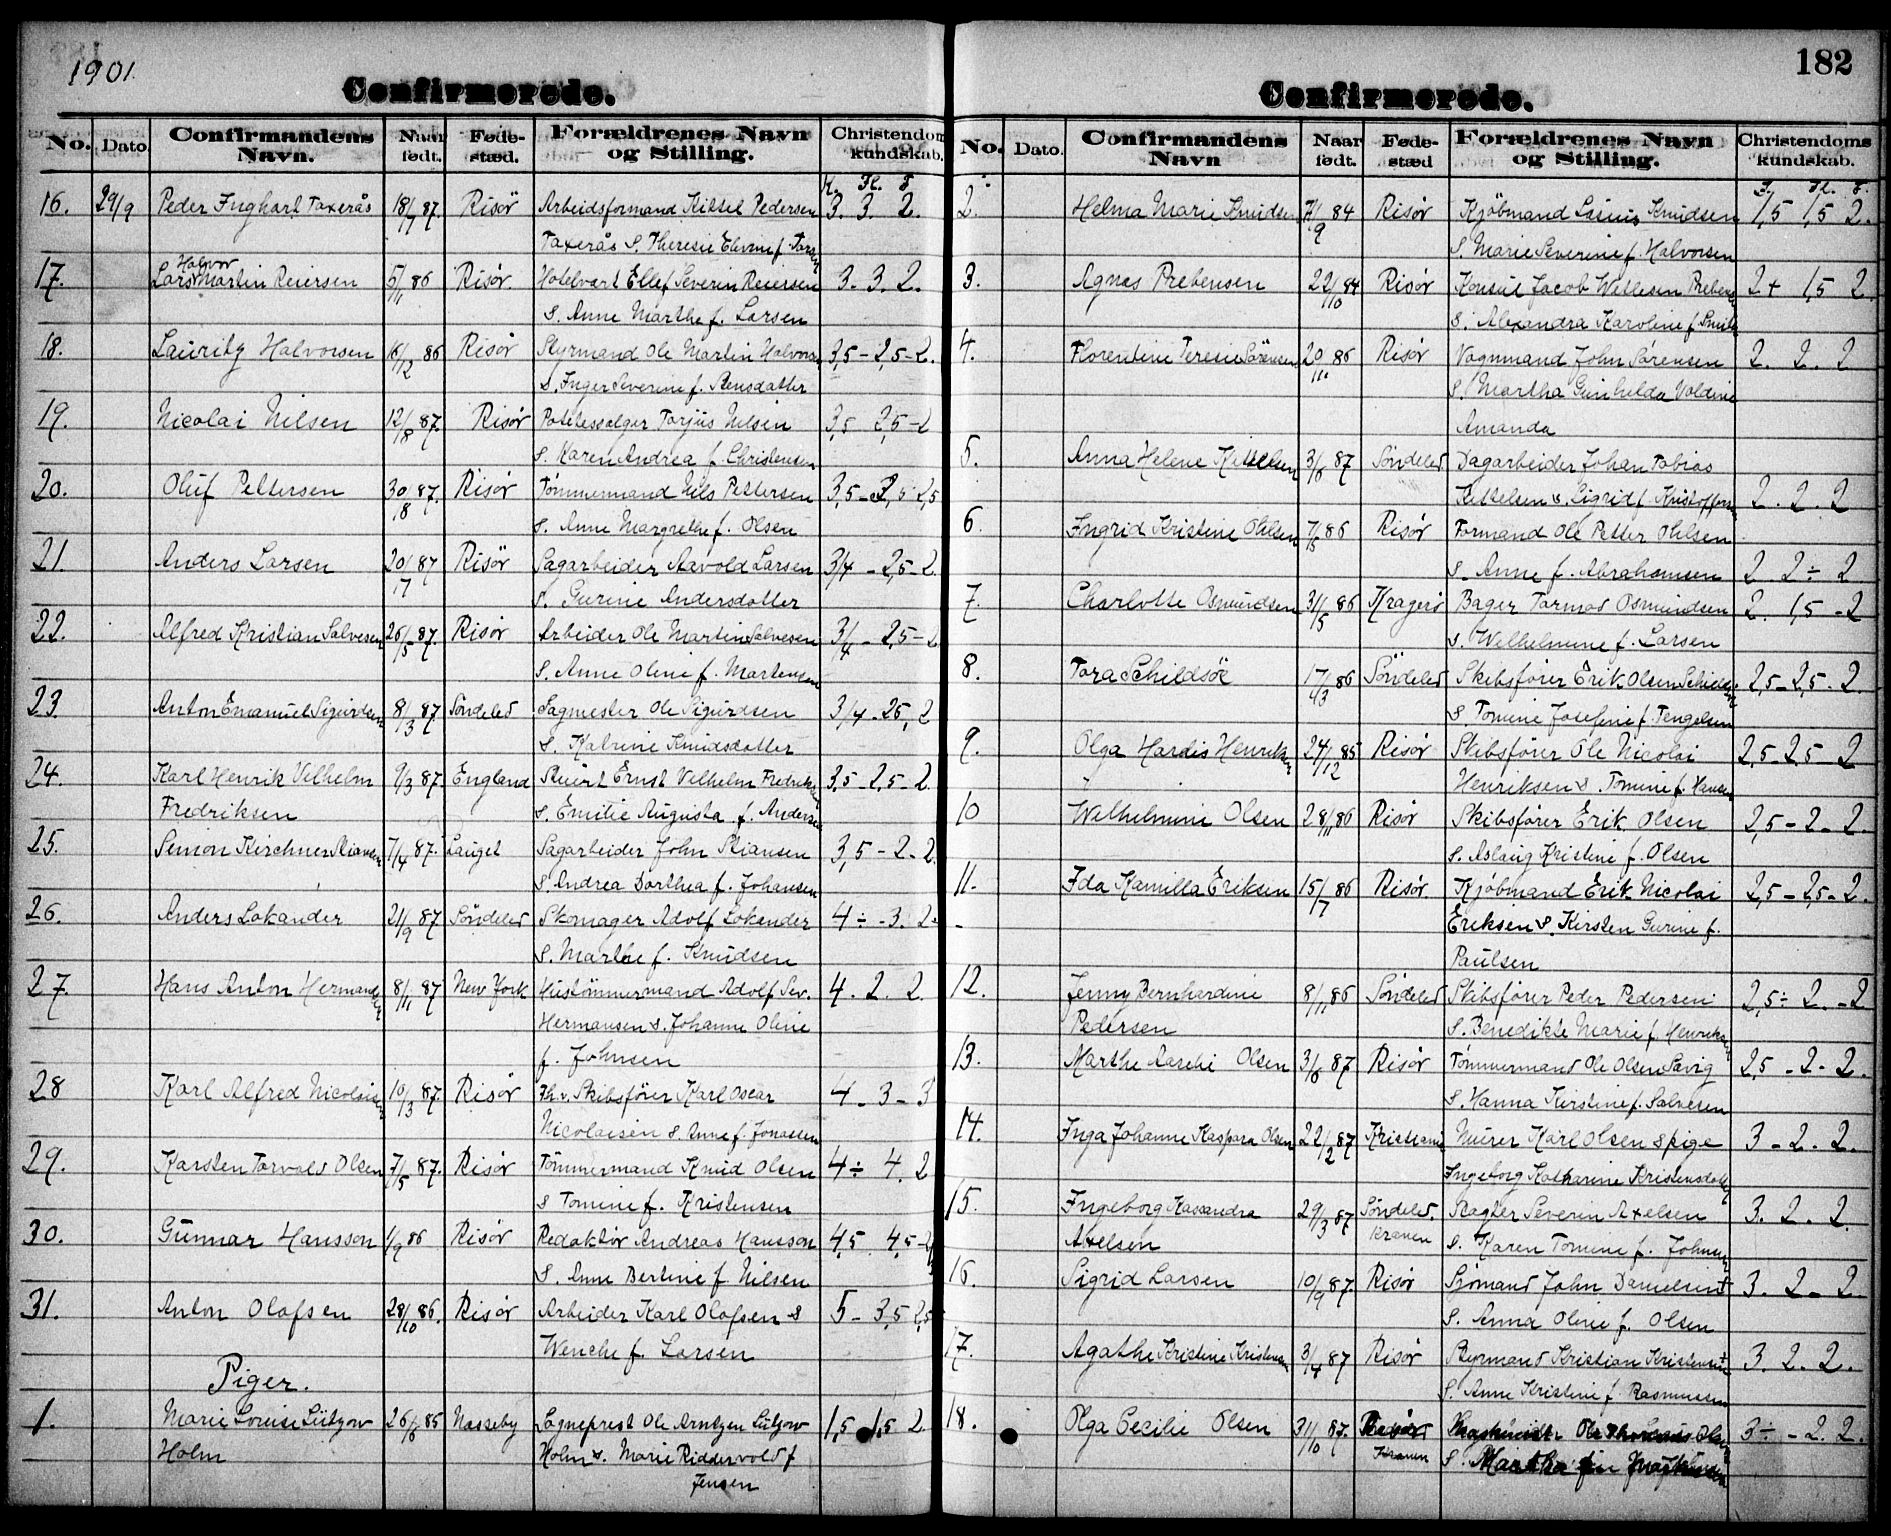 1901.
Confirmerede.
No. Dato. Confirmandens Navn. Naar født. Føde-stæd. Forældrenes Navn og Stilling. Christendoms kundskab.
K. Fl. F
16. 29/9 Peder Inghart Taxerås 18/7 87. Risör Arbeidsformand Kittel Pedersen 3. 3. 2.
Taxerås &. Theresie Elvine f.
17. Lars Halvor Martin Reiersen 5/11 86 Risør. Hotelvært Ellef Severin Reiersen 3. 3. 2.
&. Anne Marthe f. Larsen
18. Lauritz Halvorsen 16/12 86 Risør Styrmand Ole Martin Halvorsen 3,5 - 2,5 - 2.
&. Inger Severine f. Jensdatter
19. Nicolai Nilsen 12/8 87. Risør Potetessælger Torjus Nilsen 3,5 - 2,5 - 2
&. Karen Andrea f. Christensen
20. Oluf Pettersen 30/8 87. Risør Tømmermand Nils Pettersen 3,5 - 2,5 2,5
&. Anne Margrethe f. Olsen
21. Anders Larsen 20/7 87 Risør Sagarbeider Aavold Larsen 3/4 - 2,5 - 2.
&. Gurine Andersdatter
22. Alfred Kristian Salvesen 26/5 87. Risør Arbeider Ole Martin Salvesen 3/4 - 2,5 - 2
&. Anne Oline f. Martensen
23. Anton Emanuel Sigurdsen 8/3 87 Søndeled Sagmester Ole Sigurdsen 3/4 - 2,5, 2
&. Katrine Knudsdatter
24. Karl Henrik Vilhelm 9/3 87. England Stuert Ernst Vilhelm Fredriksen 3,5 - 2,5 - 2.
Fredriksen &. Emilie Augusta f. Andersen
25. Simon Kirchner Stiansen 7/4 87. Sauget Sagarbeider John Stiansen 3,5 - 2 - 2.
&. Andrea Dorthea f. Johansen
26. Anders Lokander 21/9 87. Søndeled Skomager Adolf Lokander 4 ÷ - 3. 2.
&. Marthe f. Knudsen
27. Hans Anton Hermansen 8/11 87 New York Hustømmermand Adolf Sev. 4. 2. 2.
Hermansen &. Johanne Oline
f. Johnsen
28 Karl Alfred Nicolaisen 10/3 87. Risør Fh.v. Skibsfører Karl Oscar 4 - 3 - 3
Nicolaisen &. Anne f. Jonassen
29. Karsten Torvald Olsen 7/5 87. Risør Tømmermand Knud Olsen 4 ÷ 4. 2
& Tomine f. Kristensen
30. Gunnar Hansson 1/9 86 Risør Redaktør Andreas Hansson 4,5 4,5 -
&. Anne Bertine f. Nilsen
31. Anton Olafsen 28/10 86. Risør Arbeider Karl Olafsen & 5 - 3,5 2,5
Wenche f. Larsen
Piger.
1. Marie Louise Lützow 26/6 85 Nesseby Sogneprest Ole Arntzen Lützow 1,5 1,5 2.
Holm Holm &. Marie Riddervold f
Jensen
182
Confirmerede.
No. Dato. Confirmandens Navn Naar født. Føde-stæd Forældrenes Navn og Stilling. Christendoms kundskab.
Fl. F.
2. Helma Marie Knudsen 7/9 84 Risør Kjøbmand Lauris Knudsen 1,5 1,5 2.
&. Marie Severine f. Halvorsen
3. Agnes Prebensen 22/10 84 Risør Konsul Jacob Wetlesen Prebensen 2+ 1,5 2.
&. Alexandra Karoline f. Smith
4. Florentine Teresie Sørensen 20/11 86 Risør Vognmand John Sørensen 2. 2. 2
&. Martha Gunhilda Voldine
Amanda
5. Anna Helene Kittelsen 3/6 87 Söndeled Dagarbeider Johan Tobias
Kittelsen &. Sigrid f. Kristoffersen 2. 2. 2
6. Ingrid Kristine Ohlsen 7/5 86 Risør Formand Ole Petter Ohlsen
&. Anne f. Abrahamsen 2. 2÷ 2
7. Charlotte Osmundsen 31/5 86 Kragerø Bager Tarmod Osmundsen 2. 1,5 - 2
&. Wilhelmine f. Larsen
8. Tora Schildsöe 17/3 86 Söndeled Skibsfører Erik Olsen 2,5 - 2,5 - 2.
&. Tomine Josefine f. Tengelsen
9. Olga Hardis Henriksen 24/12 85 Risør Skibsfører Ole Nicolai 2,5 - 2,5 - 2
Henriksen &. Tomine f. Hansen
10 Wilhelmine Olsen 28/11 86 Risør Skibsfører Erik Olsen 2,5 - 2 - 2.
&. Aslaug Kristine f. Olsen
11. Ida Kamilla Eriksen 15/7 86 Risør. Kjøbmand Erik Nicolai 2,5 - 2,5 - 2.
Eriksen &. Kirsten Gurine f.
Paulsen
12. Jenny Bernhardine 8/11 86 Søndeled Skibsfører Peder Pedersen 2,5 ÷ 2. - 2
Pedersen &. Benedikte Marie f. Henriksen
13. Marthe Aaselie Olsen 3/6 87 Risør Tømmermand Ole Olsen Savig 2,5 - 2 - 2.
&. Hanna Kirstine f. Salvesen
14. Inga Johanne Kaspara Olsen 22/2 87 Kristiania Murer Karl Olsen & pige 3 - 2. 2.
Ingeborg Katharine Kristensdatter
15. Ingeborg Kassandra 29/3 87 Søndeled. Slagter Severin Axelsen 3. 2. 2.
Axelsen Kranen &. Karen Tomine f. Johnsen
16. Sigrid Larsen 10/9 87. Risør Sjømand John Danielsen+ 3. 2 - 2.
&. Anna Oline f. Olsen
17. Agathe Kristine Kristensen 3/4 87 Risør Styrmand Kristian Kristensen+ 3. 2. 2.
&. Anne Kristine f. Rasmussen
18. Olga Cecilie Olsen 31/10 87. Risør Ole Olsen 3 ÷ - 2. 2.
Kranen &. Martha